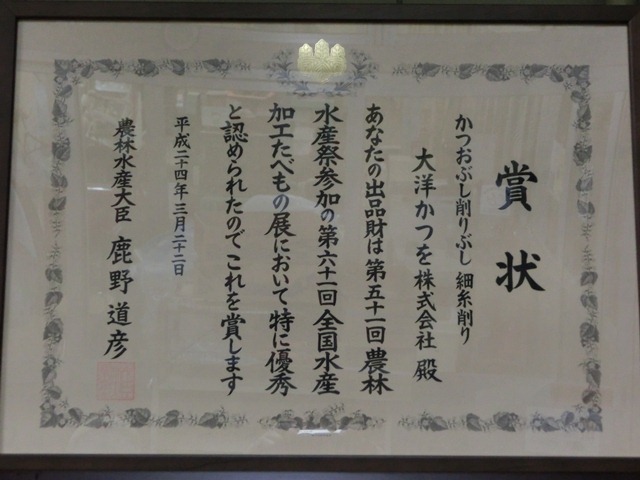 賞状
かつおぶし削りぶし 細糸削り
大洋かつを株式会社 殿
あなたの出品財は第五十一回 農林
水産祭参加の第六十一回 全国水産
加工たべもの展において特に優秀
と認められたのでこれを賞します
平成二十四年三月二十二日
農林水産大臣 鹿野道彦